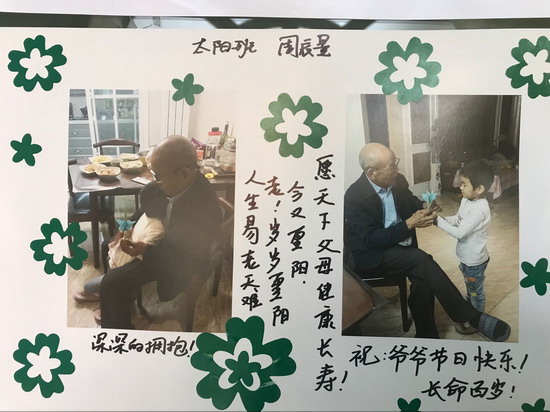 太阳班 周辰星
人生易老天难
老！岁岁重阳
今又重阳．
愿天下父母健康长寿！
深深的拥抱！
祝：爷爷节日快乐！
长命百岁！